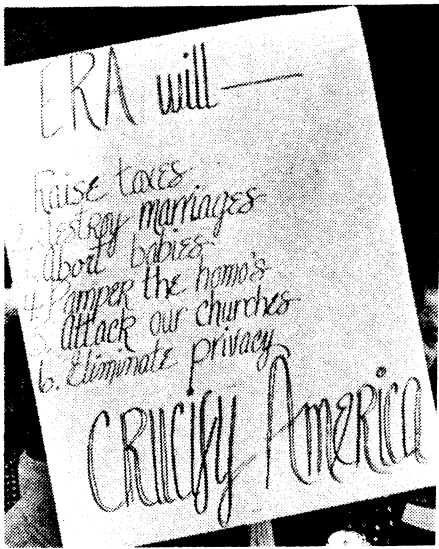 ERA will —
Raise taxes
destroy marriages
abort babies
4. Pamper the homo's
attack our churches
6. Eliminate privacy
CRUCIFY AMERICA